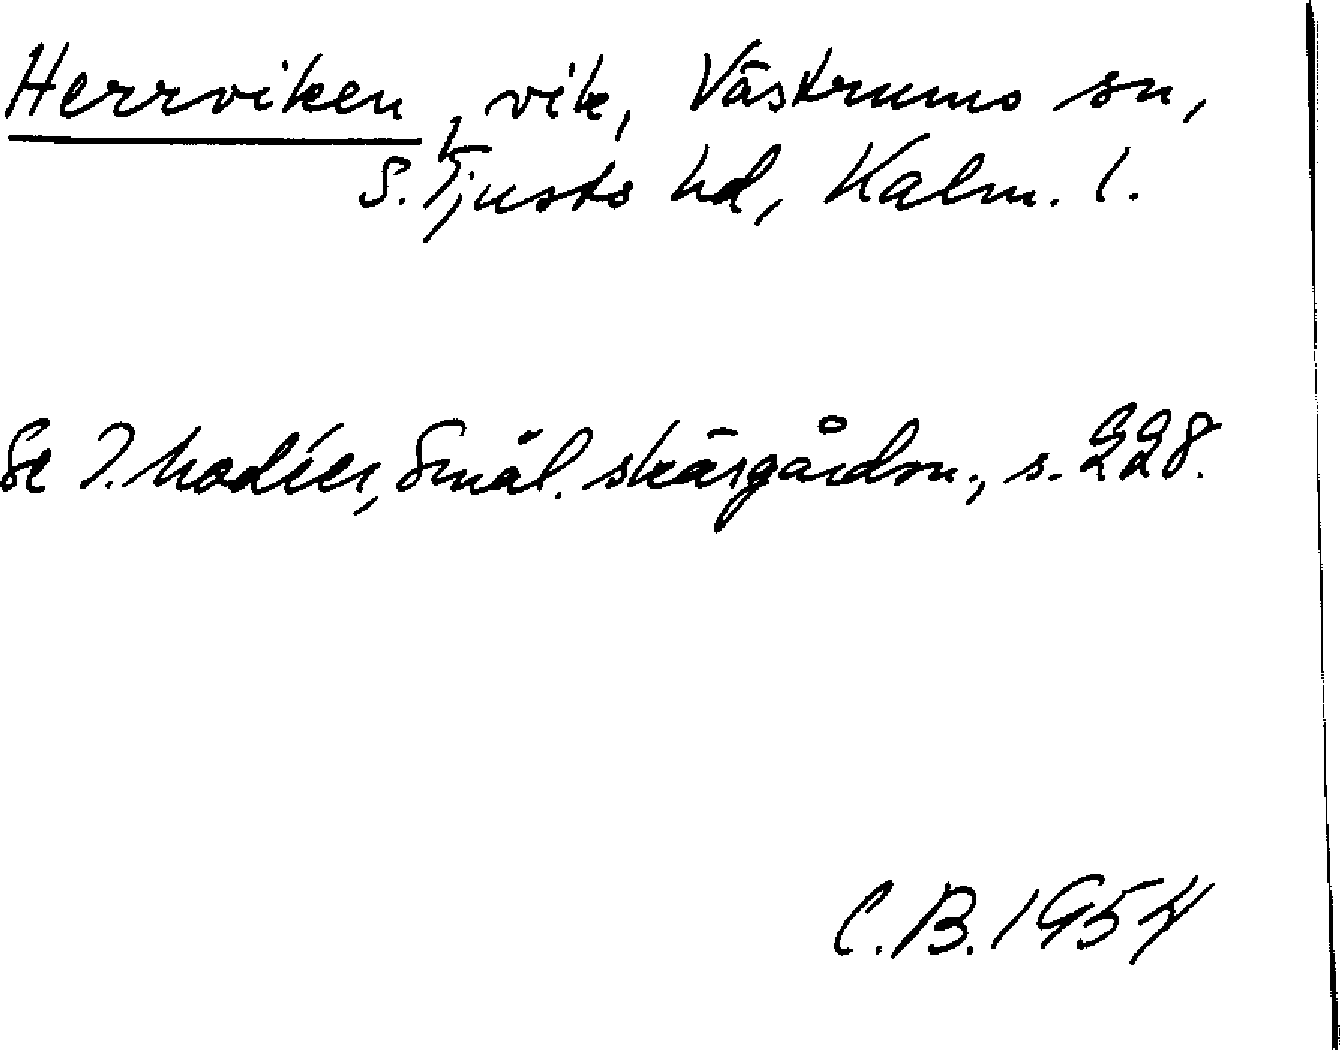 Herrviken, vik, Västrums sn,
S. Tjusts hd, Kalm. l.
Se I. Modéer, Smål. skärgårdsn., s. 228.
C.B. 1954